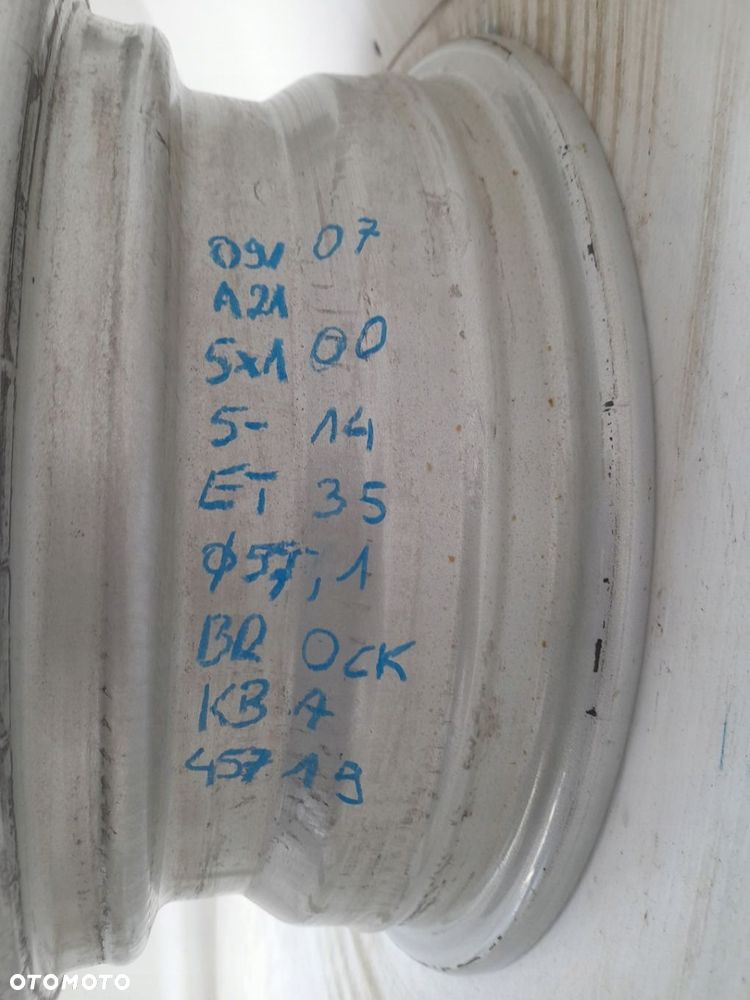 091 07
A21
5x1 00
5- 14
ET 35
Ø57,1
BR OCK
KBA
457 19
OTOMOTO